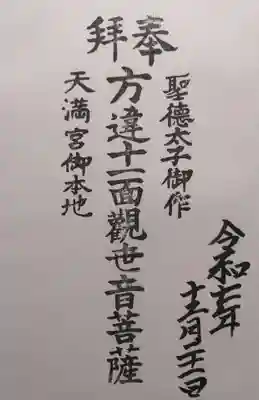 奉拜
令和七年
十二月二十一日
聖德太子御作
方違十一面觀世音菩薩
天満宮御本地